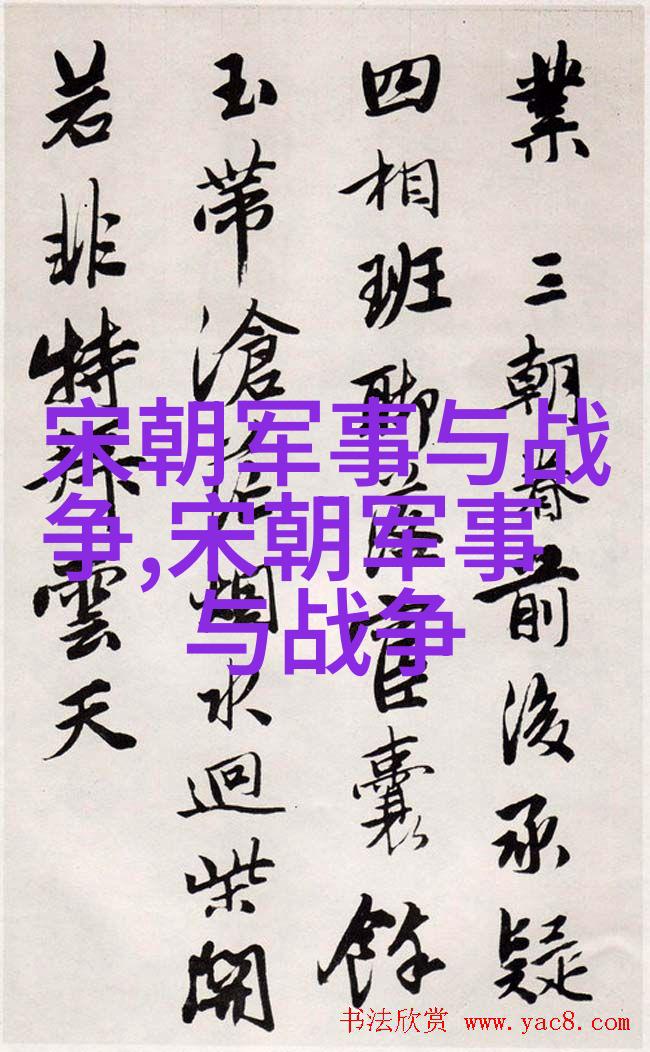 業 三朝眷前後承疑
四相班聊落宦囊餘
玉帶滄烟水迴柴開
若非特雲天
宋朝军事与战
争,宋朝军事
与战争
书法欣赏 www.yac8.com